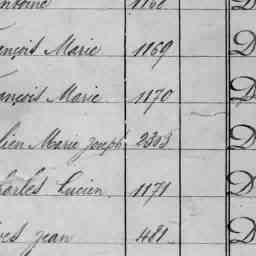 ntoine 1168 D
ençois Marie 1169 D
ançois Marie 1170 D
lien Marie Joseph 2303 D
harles Lucien 1171 D
ves Jean 481 D